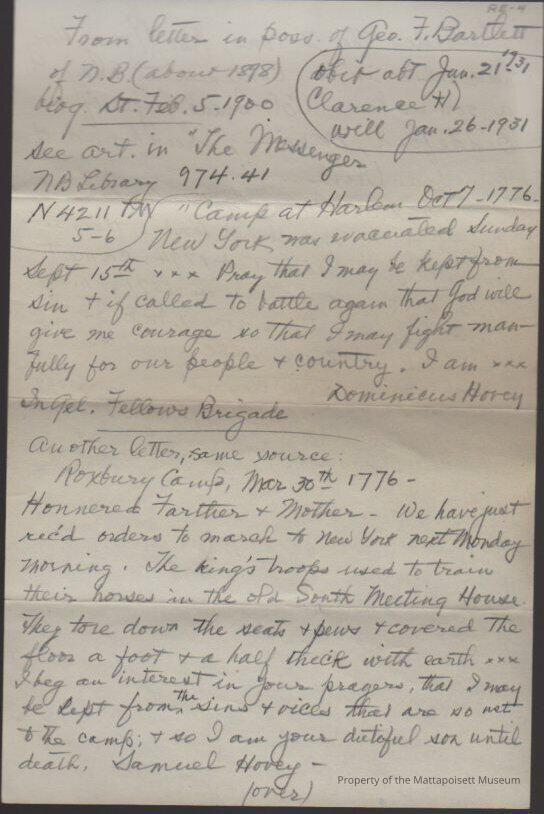 RE-4
From letter in poss. of Geo. F. Bartlett
of N.B (about 1898)
obit abt Jan. 21st 1931
biog. St. Feb. 5-1900
Clarence H
will Jan. 26-1931
see art. in "The Messenger
NB Library 974.41
N4211
5-6
"Camp at Harlem Oct 7-1776-
New York was evacuated Sunday
Sept 15th xxx Pray that I may be kept from
sin + if called to battle again that God will
give me courage so that I may fight man-
fully for our people + country. I am xxx
Dominicus Hovey
In Gel. Fellows Brigade
Another letter, same source:
Roxbury Camp, Mar 30th 1776-
Honnered Farther + Mother - We have just
rec'd orders to march to New York next Monday
morning. The king's troops used to train
their horses in the old South Meeting House.
They tore down the seats + pews + covered the
floor a foot + a half thick with earth xxx
I beg an interest in your prayers, that I may
be kept from the sins + vices that are so
to the camp; + so I am your dutiful son until
death. Samuel Hovey-
(over)
Property of the Mattapoisett Museum